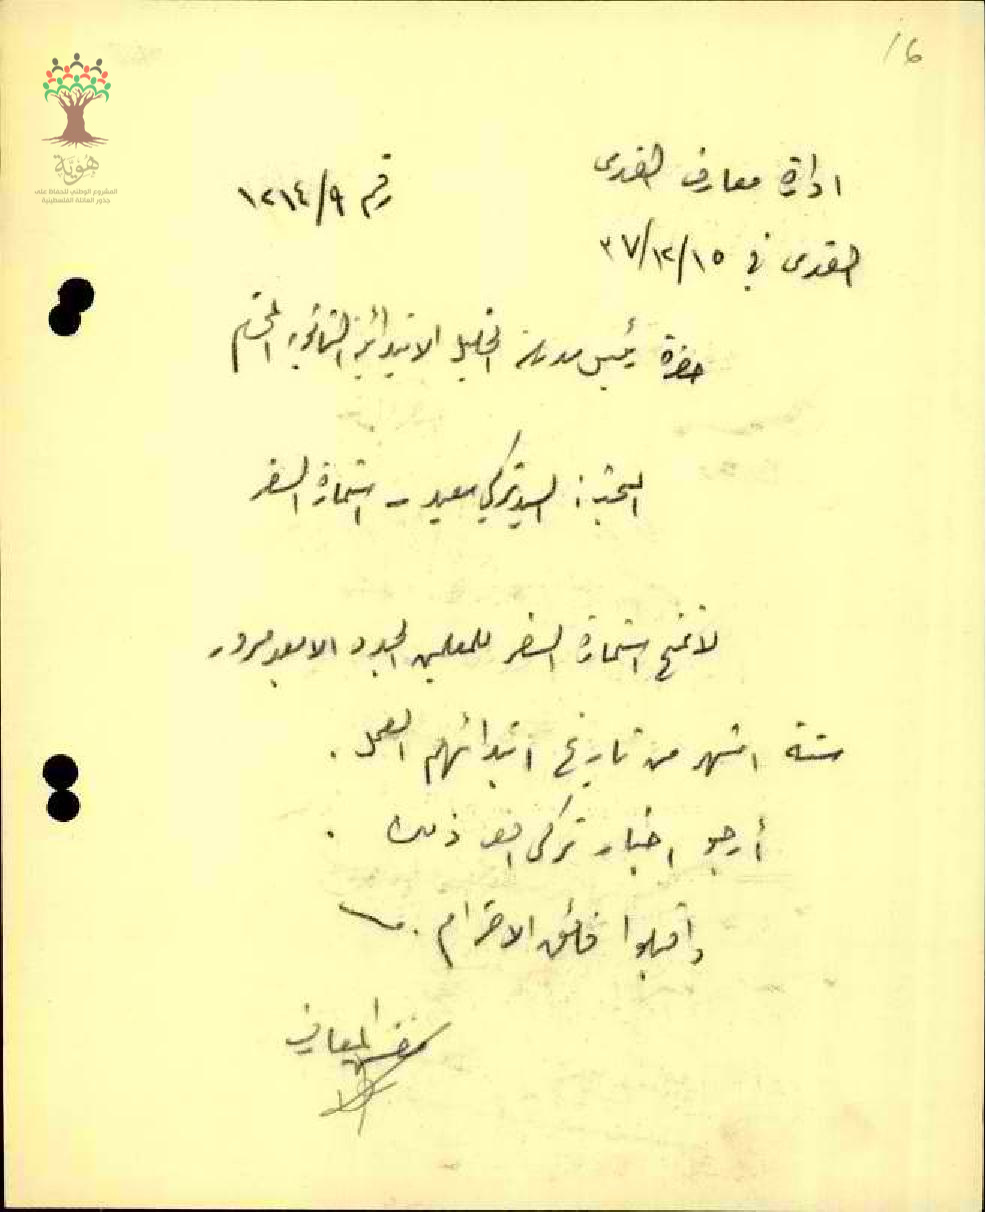 16
هوية
المشروع الوطني للحفاظ على
جذور العائلة الفلسطينية
ادارة معارف القدس
رقم ١٢١٤/٩
القدس في ٣٧/١٢/١٥
حضرة رئيس مدرسة الخليل الابتدائية الثانوية المحترم
المبحث: السيد تركي سعيد - استمارة السفر
لا تمنح استمارة السفر للمعلمين الجدد الا بعد مرور
ستة اشهر من تاريخ ابتدائهم العمل.
أرجو اخبار تركي افندي ذلك.
واقبلوا فائق الاحترام.
مفتش المعارف